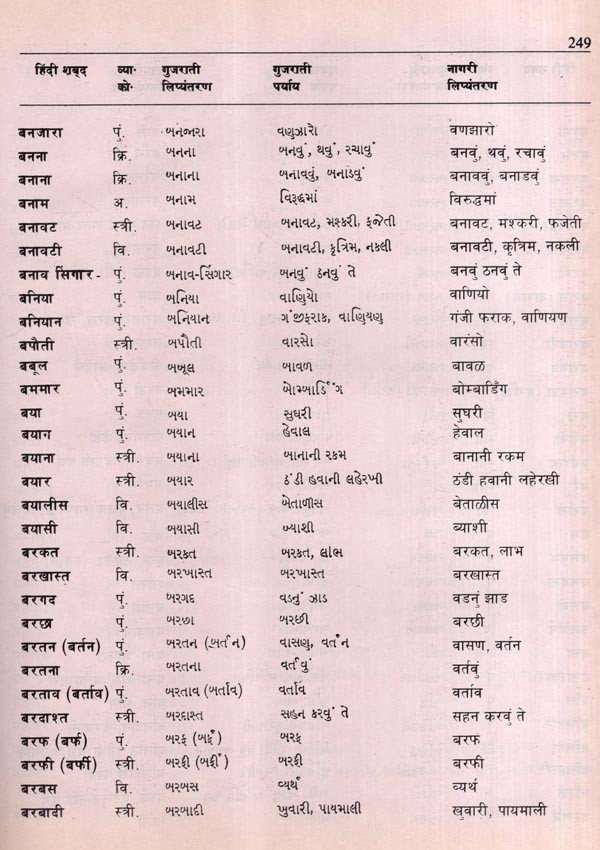 249
हिंदी शब्द व्या॰ को॰ गुजराती लिप्यंतरण गुजराती पर्याय नागरी लिप्यंतरण
बनजारा पुं. બનજારા વણઝારો वणझारो
बनना क्रि. બનના બનવું, થવું, રચાવું बनवुं, थवुं, रचावुं
बनाना क्रि. બનાના બનાવવું, બનાડવું बनाववुं, बनाडवुं
बनाम अ. બનામ વિરૂદ્ધમાં विरुद्धमां
बनावट स्त्री. બનાવટ બનાવટ, મશ્કરી, ફજેતી बनावट, मश्करी, फजेती
बनावटी वि. બનાવટી બનાવટી, કૃત્રિમ, નકલી बनावटी, कृत्रिम, नकली
बनाव सिंगार - पुं. બનાવ-સિંગાર બનવું ઠનવું તે बनवुं ठनवुं ते
बनिया पुं. બનિયા વાણિયો वाणियो
बनियान पुं. બનિયાન ગંજીફરાક, વાણિયણ गंजी फराक, वाणियण
बपौती स्त्री. બપૌતી વારસો वारंसो
बबूल पुं. બબૂલ બાવળ बावळ
बममार पुं. બમમાર બોમ્બાર્ડિંગ बोम्बार्डिंग
बया पुं. બયા સુઘરી सुघरी
बयान पुं. બયાન હેવાલ हेवाल
बयाना स्त्री. બયાના બાનાની રકમ बानानी रकम
बयार स्त्री. બયાર ઠંડી હવાની લહેરખી ठंडी हवानी लहेरखी
बयालीस वि. બયાલીસ બેતાળીસ बेताळीस
बयासी वि. બયાસી બ્યાશી ब्याशी
बरकत स्त्री. બરકત બરકત, લાભ बरकत, लाभ
बरखास्त वि. બરખાસ્ત બરખાસ્ત बरखास्त
बरगद पुं. બરગદ વડનું ઝાડ वडनुं झाड
बरछा पुं. બરછા બરછી बरछी
बरतन (बर्तन) पुं. બરતન (બર્તન) વાસણ, વર્તન वासण, वर्तन
बरतना क्रि. બરતના વર્તવું वर्तवुं
बरताव (बर्ताव) पुं. બરતાવ (બર્તાવ) વર્તાવ वर्ताव
बरदाश्त स्त्री. બરદાસ્ત સહન કરવું તે सहन करवुं ते
बरफ (बर्फ) पुं. બરફ (બર્ફ) બરફ बरफ
बरफी (बर्फी) स्त्री. બરફી (બર્ફી) બરફી बरफी
बरबस वि. બરબસ વ્યર્થ व्यर्थ
बरबादी स्त्री. બરબાદી ખુવારી, પાયમાલી खुवारी, पायमाली